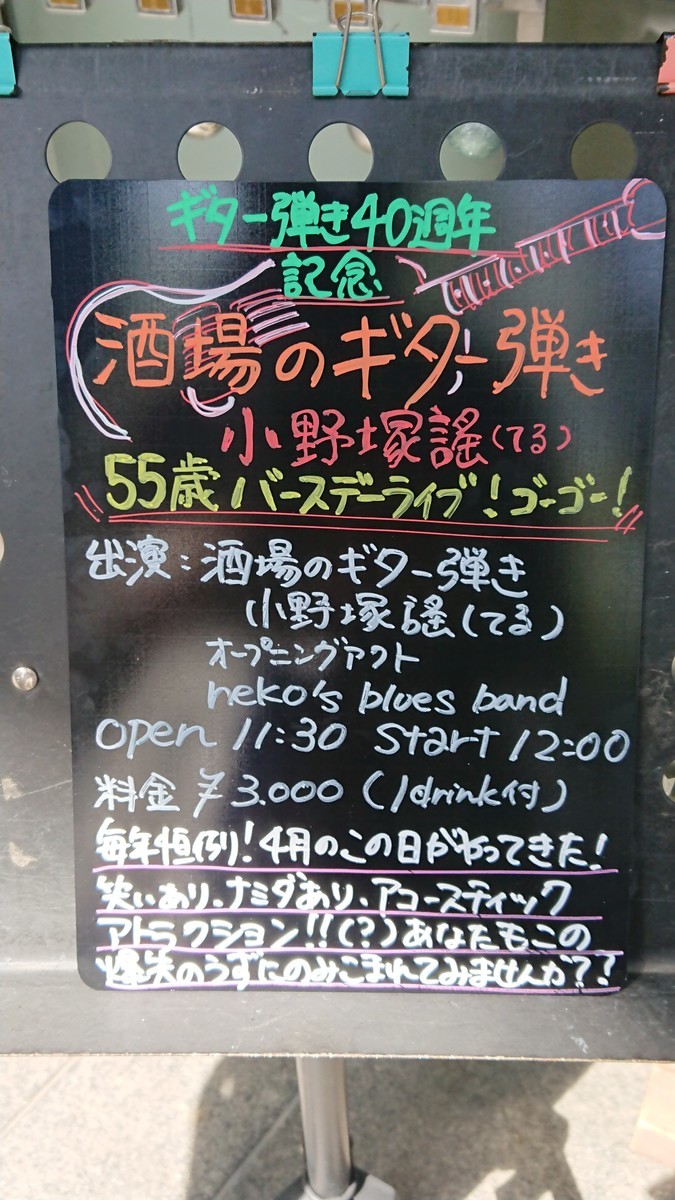 ギター弾き40週年
記念
酒場のギター弾き
小野塚謠(てる)
55歳バースデーライブ!ゴーゴー!
出演:酒場のギター弾き
小野塚謠(てる)
オープニングアクト
neko's blues band
open 11:30 start 12:00
料金 ¥3.000 (1drink付)
毎年恒例!4月のこの日がやってきた!
笑いあり、ナミダあり、アコースティック
アトラクション!!(?)あなたもこの
爆笑のうずにのみこまれてみませんか??